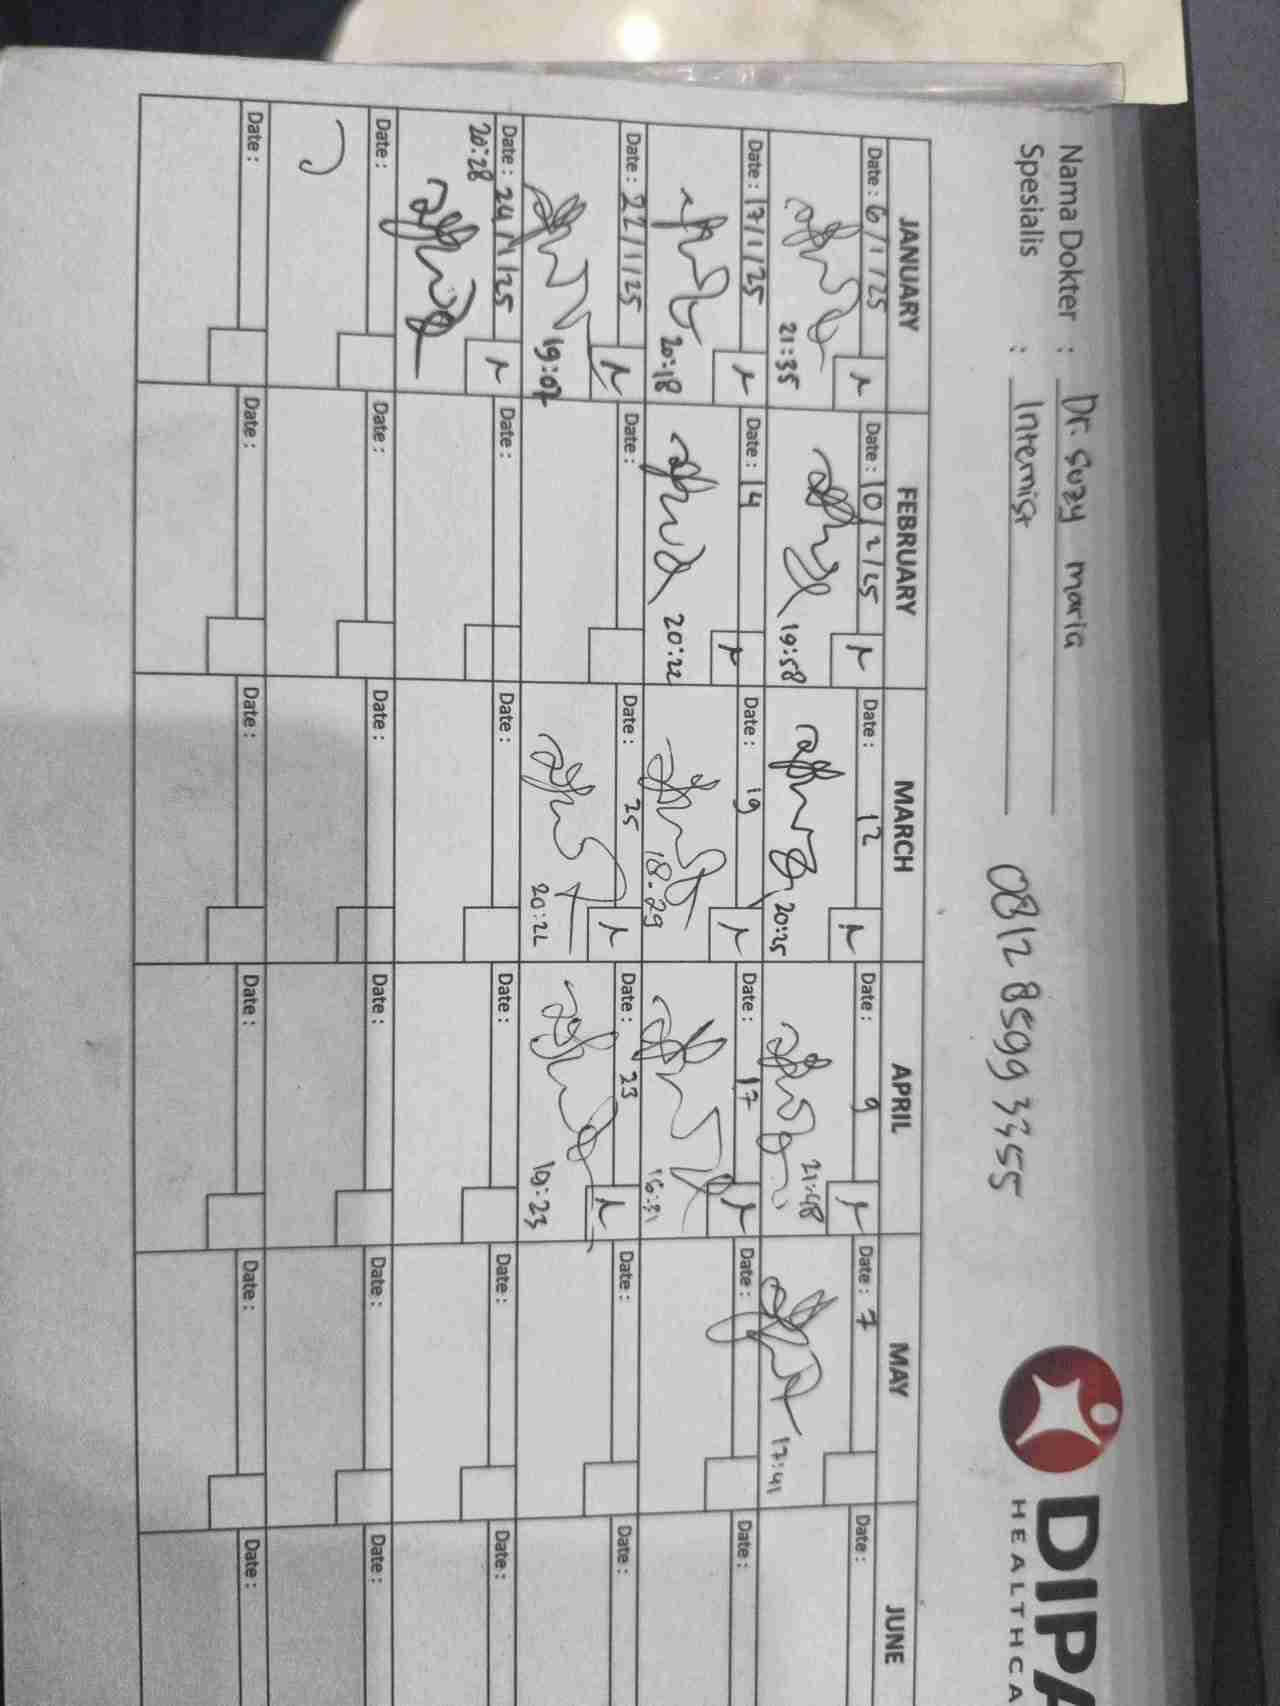 Nama Dokter : Dr. Suzy maria
Spesialis : Internist
0812 8599 3355
DIPA
HEALTHCA
JANUARY FEBRUARY MARCH APRIL MAY JUNE
Date : 6/1/25 Date : 10/2/25 Date : 12 Date : 9 Date : 7 Date :
21:35 19:58 20:25 21:48 17:41
Date : 17/1/25 Date : 14 Date : 19 Date : 17 Date : Date :
20:18 20:22 18.29 16:31
Date : 22/1/25 Date : Date : 25 Date : 23 Date : Date :
19:07 20:22 19:23
Date : 24/1/25 Date : Date : Date : Date : Date :
20:28
Date : Date : Date : Date : Date : Date :
Date : Date : Date : Date : Date : Date :